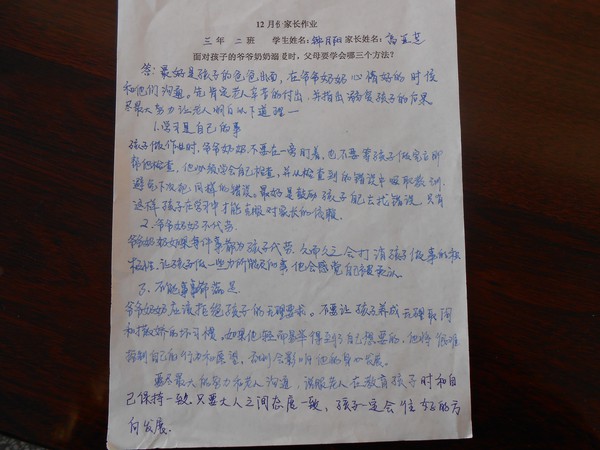 12月份家长作业
三年 二班 学生姓名: 家长姓名:
面对孩子的爷爷奶奶溺爱时，父母要学会哪三个方法？
答：最好是孩子的爸爸出面，在爷爷奶奶心情好的时候
和他们沟通。先肯定老人辛苦的付出，并指出溺爱孩子的后果
尽最大努力让老人明白以下道理一
1.学习是自己的事
孩子做作业时，爷爷奶奶不要在一旁盯着，也不要等孩子做完立即
帮他检查，他必须学会自己检查，并从检查到的错误中吸取教训
避免下次犯同样的错误。最好是鼓励孩子自己去找错误。只有
这样孩子在学习中才能克服对家长的依赖。
2.爷爷奶奶不代劳
爷爷奶奶如果每件事都为孩子代劳，久而久之会打消孩子做事的积
极性。让孩子做一些力所能及的事他会感觉自己被承认。
3.不能事事都满足
爷爷奶奶应该拒绝孩子的无理要求。不要让孩子养成无理取闹
和撒娇的坏习惯。如果他轻而易举得到自己想要的，他将很难
控制自己的行为和愿望，否则会影响他的身心发展。
要尽最大的努力和老人沟通，说服老人在教育孩子时和自
己保持一致。只要大人之间态度一致，孩子一定会往好的方
向发展。